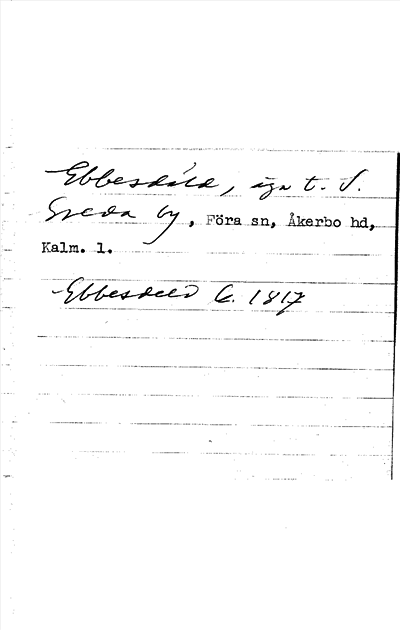 Ebbesdåld, äga t. S.
Greda by, Föra sn, Åkerbo hd,
Kalm. l.
Ebbesdeld C. 1817